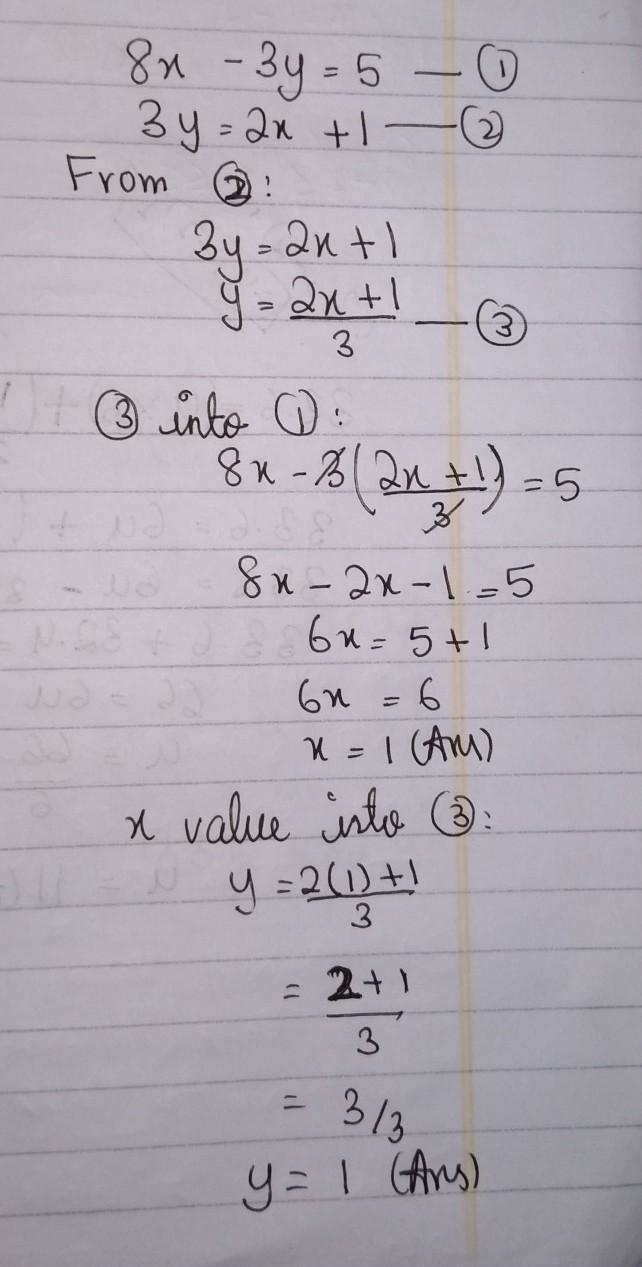 8x - 3y = 5 — ①
3y = 2x + 1 — ②
From ②:
3y = 2x + 1
y = 2x + 1 — ③
3
③ into ①:
8x - 3(2x + 1) = 5
3
8x - 2x - 1 = 5
6x = 5 + 1
6x = 6
x = 1 (Ans)
x value into ③:
y = 2(1) + 1
3
= 2 + 1
3
= 3/3
y = 1 (Ans)